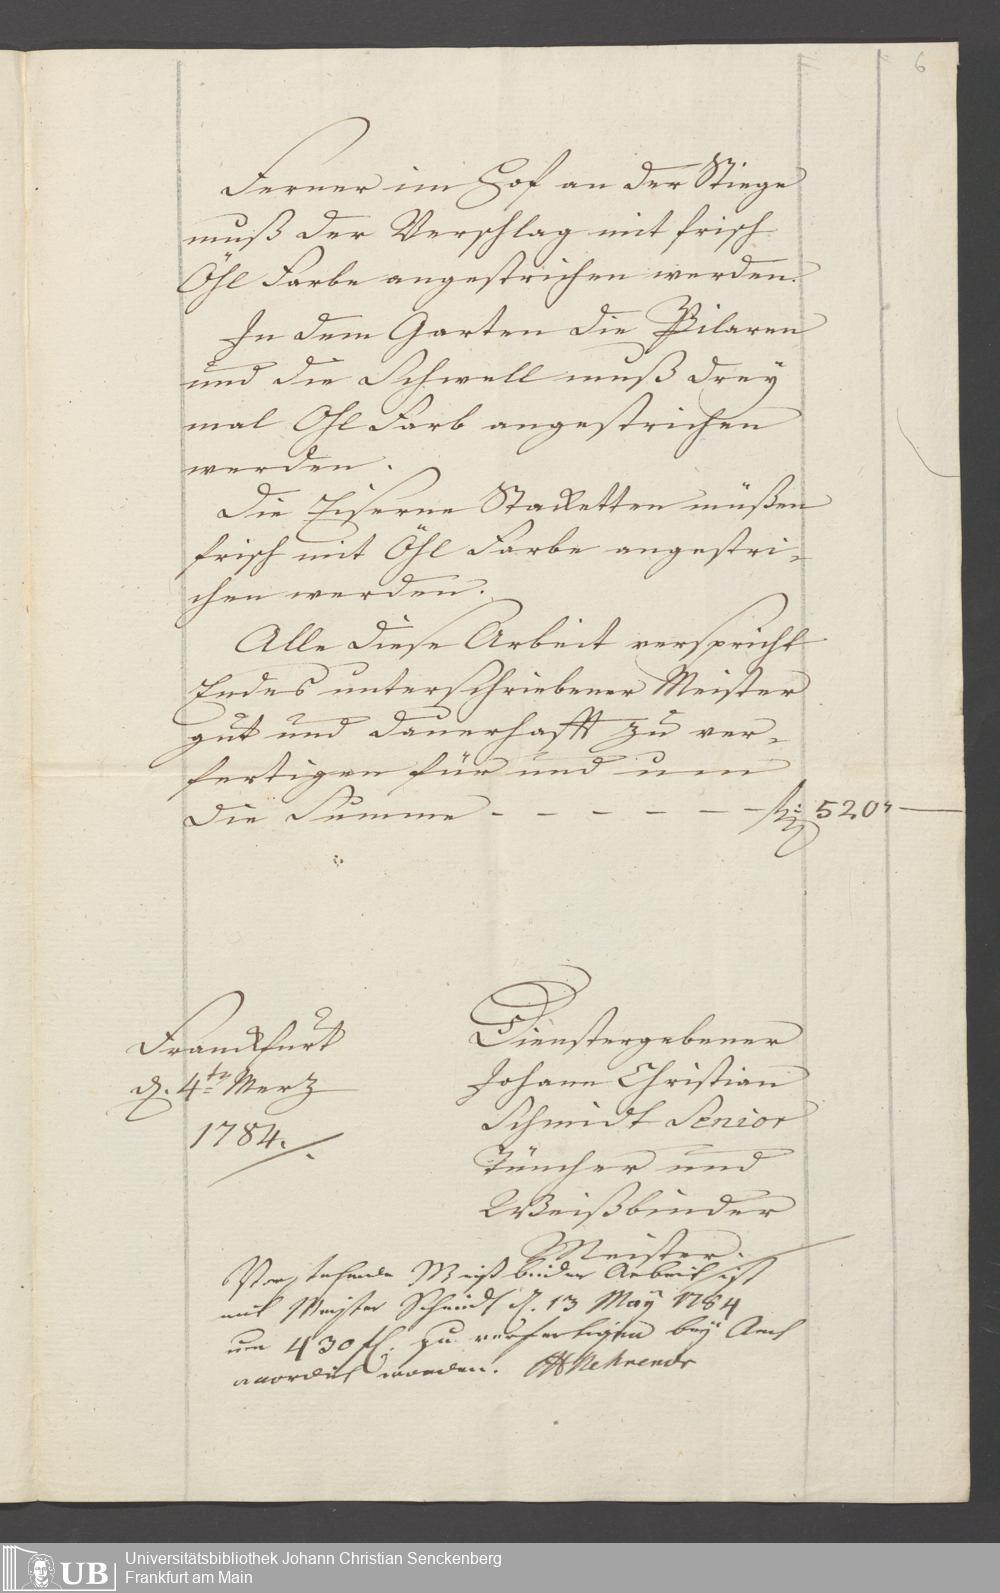 6
Ferner im Hof an der Stiege
muß der Verschlag mit frisch
Öhl Farbe angestrichen werden.
In dem Garten die Pilaren
und die Schwell muß dreÿ
mal Ohl Farb angestrichen
werden.
Die Eiserne Stacketten müßen
frisch mit Öhl Farbe angestri-
chen werden.
Alle diese Arbeit verspricht
Endes unterschriebener Meister
gut und dauerhafft zu ver-
fertigen für und um
die Summe - - - - - - - f: 520,, —
Franckfurt
d. 4ten Merz
1784./.
Dienstergebener
Johann Christian
Schmidt Senior
Tüncher und
Weißbinder
Meister.
Vorstehende Weißbinder Arbeit ist
mit Meister Schmidt d. 13 Maÿ 1784
um 430 fl. zu verfertigen beÿ Amt
accordirt worden. Behrends
Universitätsbibliothek Johann Christian Senckenberg
Frankfurt am Main
UB